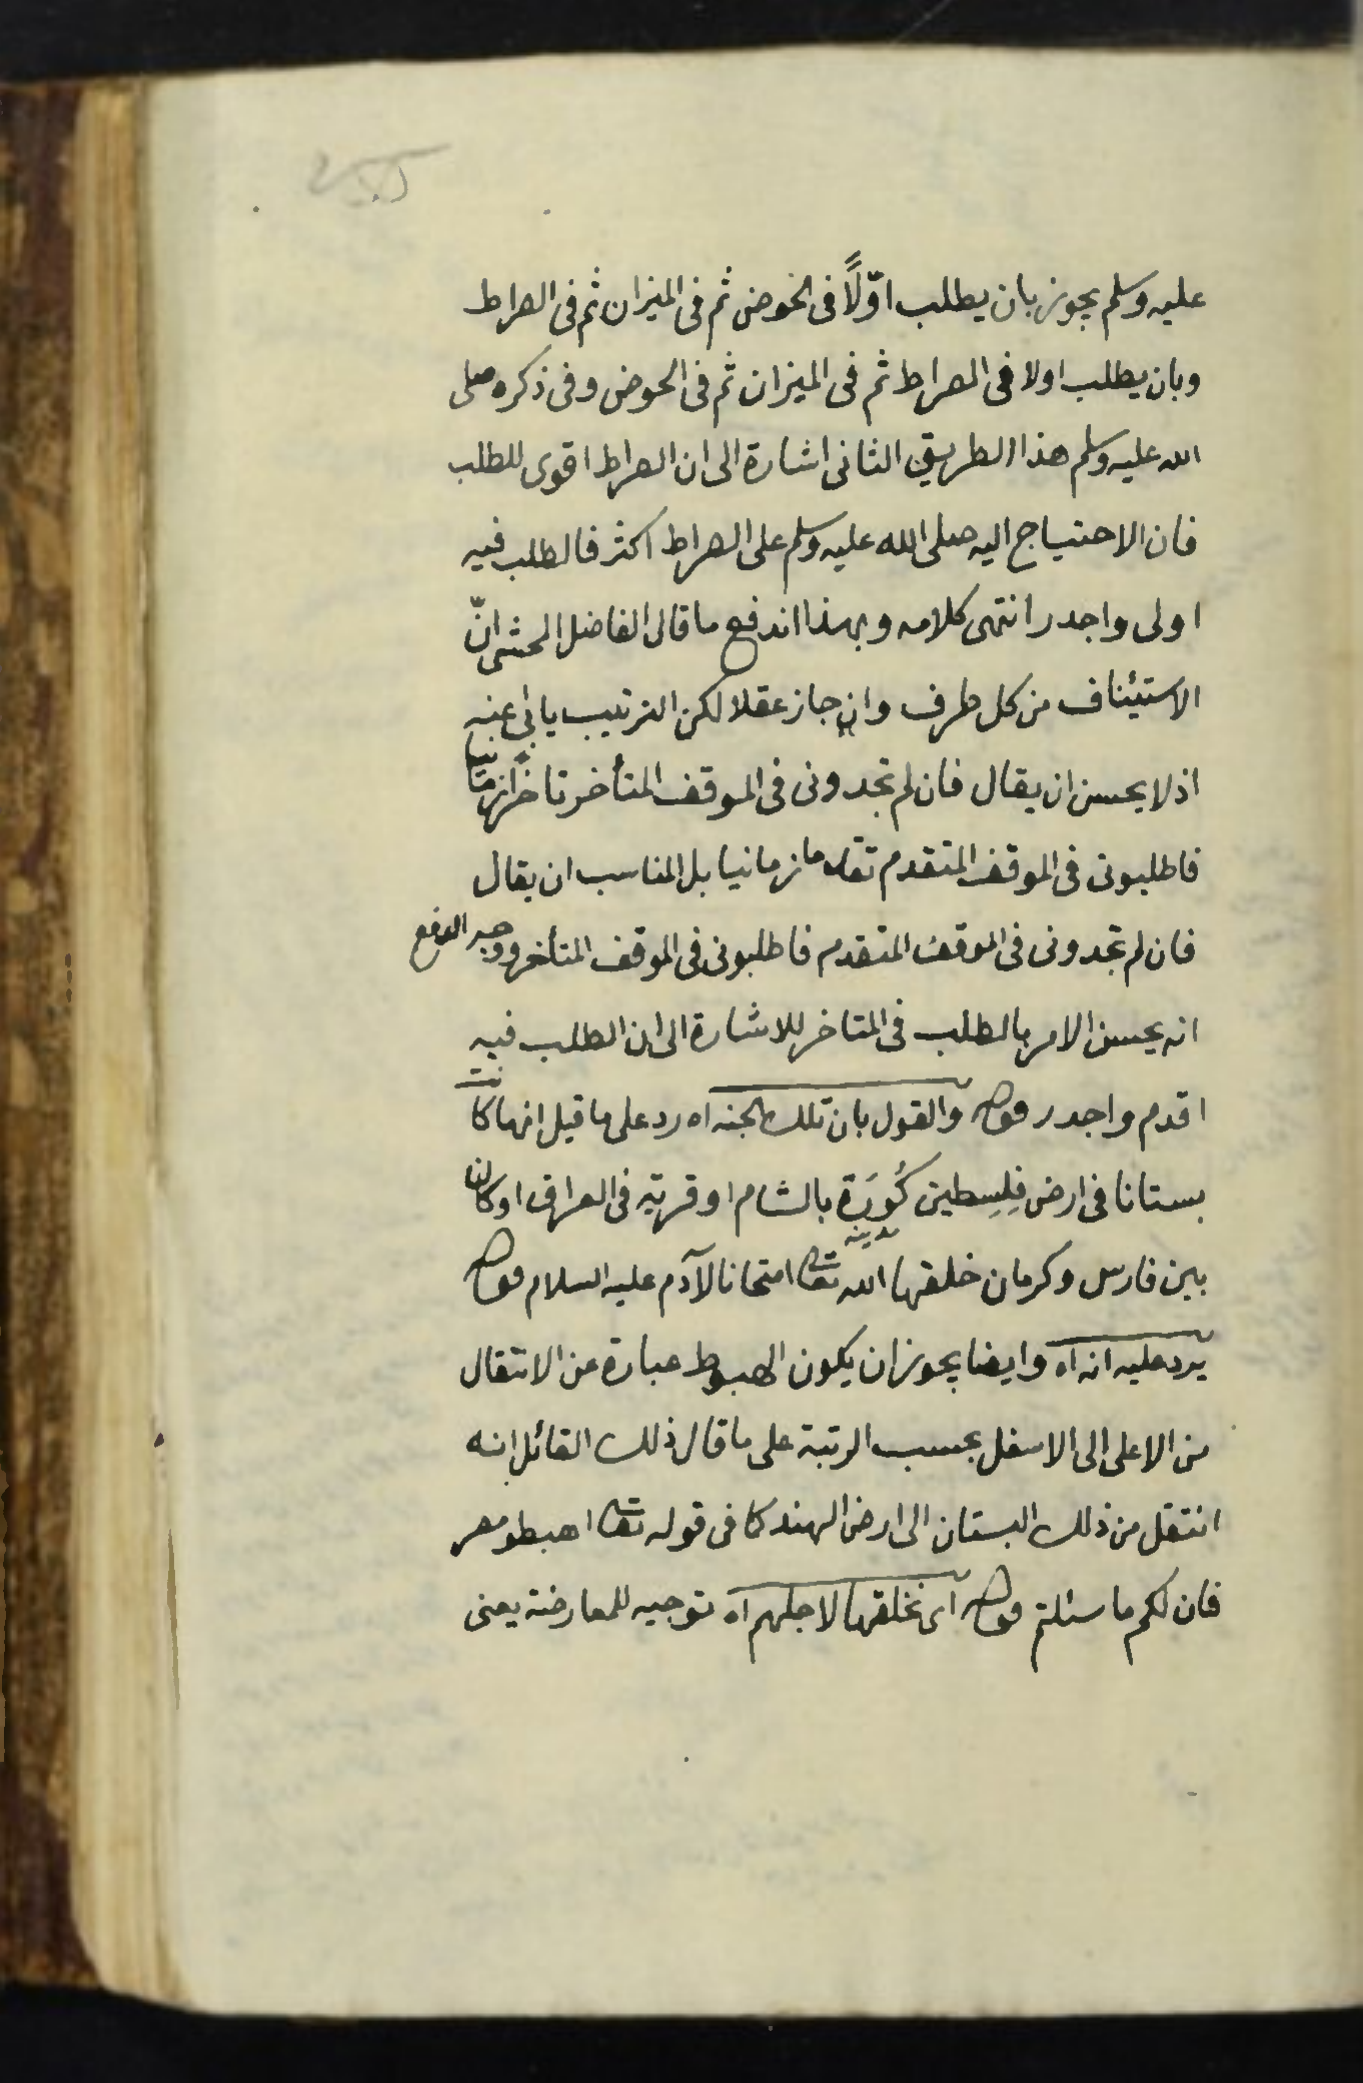 عليه وسلم يجوز بان يطلب اوّلاً فى الحوض ثم فى الميزان ثم فى الصراط
وبان يطلب اولا فى الصراط ثم فى الميزان ثم فى الحوض وفى ذكره صلى
الله عليه وسلم هذا الطريق الثانى اشارة الى ان الصراط اقوى للطلب
فان الاحتياج اليه صلى الله عليه وسلم على الصراط اكثر فالطلب فيه
اولى واجدر انتهى كلامه وبهذا اندفع ما قال الفاضل المحشى انّ
الاستيئناف من كل طرف وان جاز عقلا لكن الترتيب يابى عنه
اذ لا يحسن ان يقال فان لم تجدونى فى الموقف المتأخر تاخرا زمانيا
فاطلبونى فى الموقف المتقدم تقدما زمانيا بل المناسب ان يقال
فان لم تجدونى فى الموقف المتقدم فاطلبونى فى الموقف المتأخر ووجه الدفع
انه يحسن الامر بالطلب فى المتاخر للاشارة الى ان الطلب فيه
اقدم واجدر قوله والقول بان تلك الجنه اه رد على ما قيل انها كانت
بستانا فى ارض فِلِسطين كُورَة بالشام او قرية فى العراق او كان
مدينه
بين فارس وكرمان خلقها الله تعا امتحانا لآدم عليه السلام قوله
يرد عليه انه اه وايضا يجوز ان يكون الهبوط عبارة عن الانتقال
من الاعلى الى الاسفل بحسب الرتبة على ما قال ذلك القائل انه
انتقل من ذلك البستان الى ارض الهند كا فى قوله تعا اهبطو مصر
فان لكم ما سئلتم قوله اى نخلقها لاجلهم اه توجيه للمعارضة يعنى